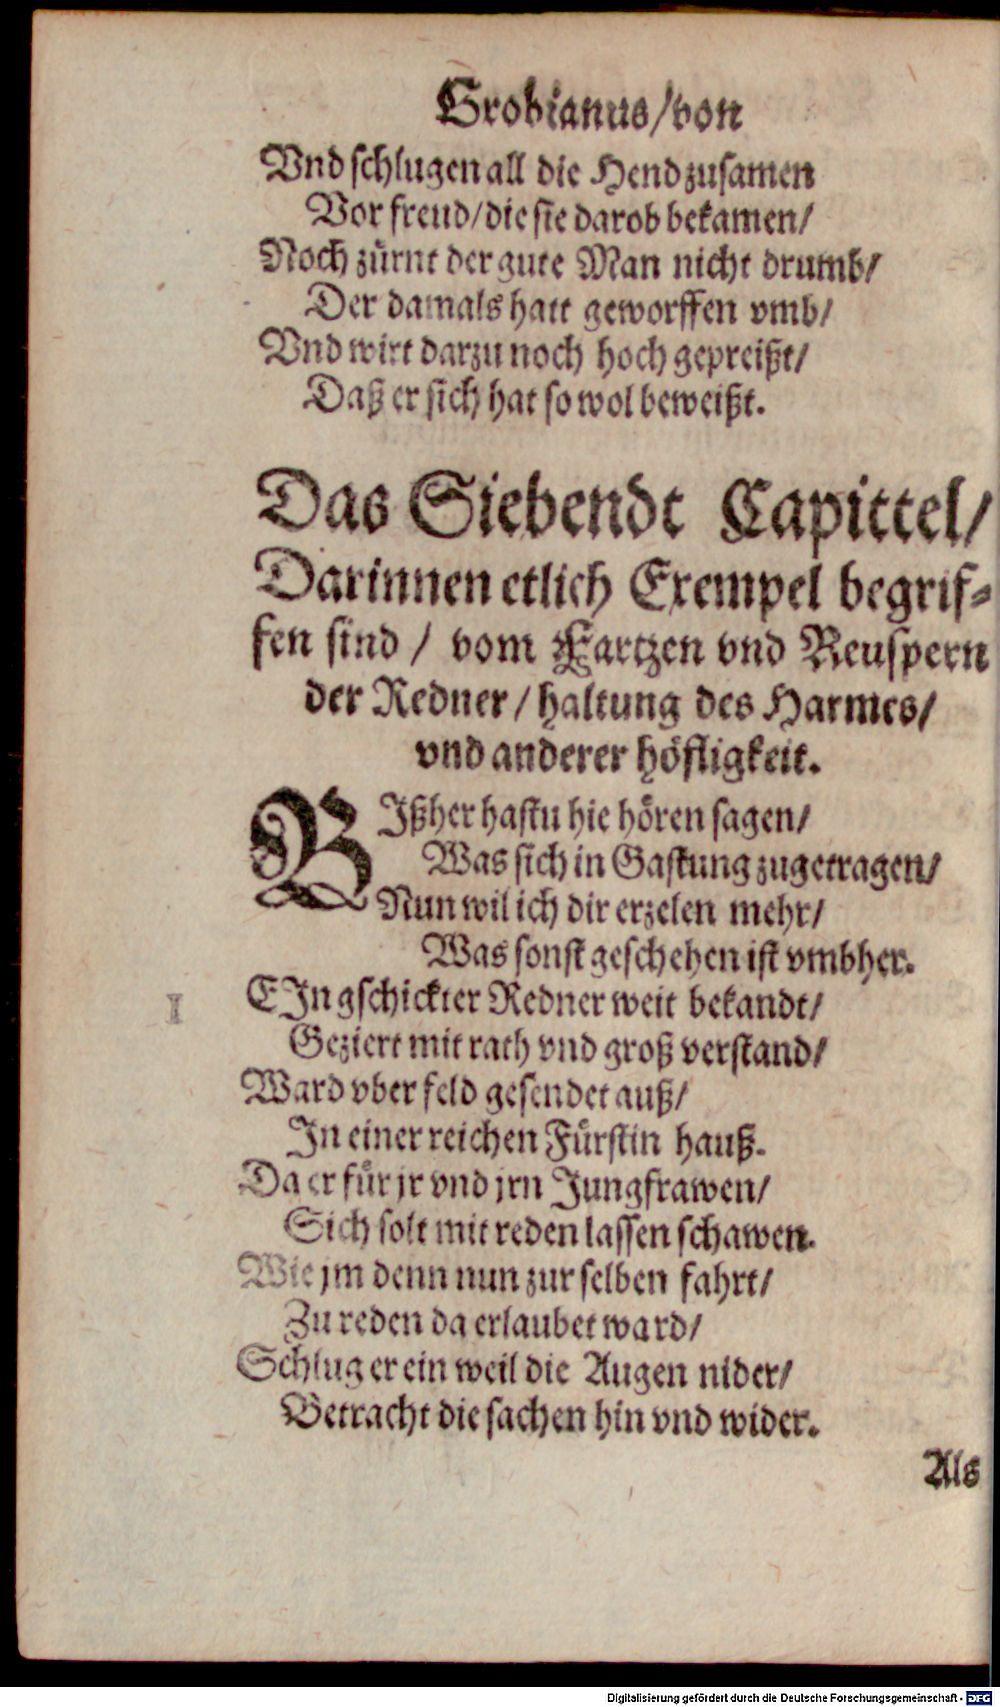 Grobianus/von
Vnd schlugen all die Hend zusamen
Vor freud/die sie darob bekamen/
Noch zürnt der gute Man nicht drumb/
Der damals hatt geworffen vmb/
Vnd wirt darzu noch hoch gepreißt/
Daß er sich hat so wol beweißt.
Das Siebendt Capittel/
Darinnen etlich Exempel begrif-
fen sind / vom Fartzen vnd Reuspern
der Redner / haltung des Harmes/
vnd anderer höfligkeit.
BIßher hastu hie hören sagen/
Was sich in Gastung zugetragen/
Nun wil ich dir erzelen mehr/
Was sonst geschehen ist vmbher.
1 EIn gschickter Redner weit bekandt/
Geziert mit rath vnd groß verstand/
Ward vber feld gesendet auß/
In einer reichen Fürstin hauß.
Da er für jr vnd jrn Jungfrawen/
Sich solt mit reden lassen schawen.
Wie jm denn nun zur selben fahrt/
Zu reden da erlaubet ward/
Schlug er ein weil die Augen nider/
Betracht die sachen hin vnd wider.
Als
Digitalisierung gefördert durch die Deutsche Forschungsgemeinschaft - DFG